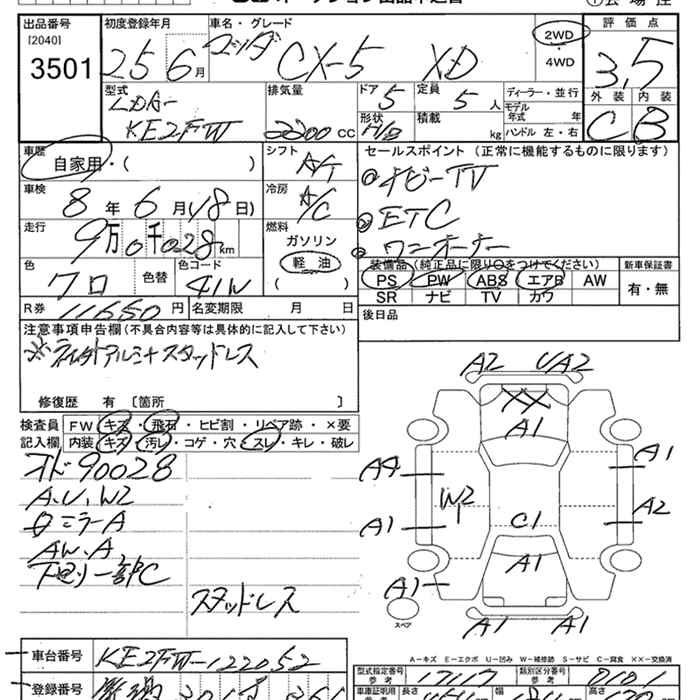 出品番号
[2040]
3501
初度登録年月
25 6月
車名・グレード
マツダ CX-5 XD
2WD
・
4WD
評価点
3.5
外装 内装
C B
型式
LDA-
KE2FW
排気量
2200 CC
ドア 5
形状 H/B
定員 5人
積載 kg
ディーラー・並行
モデル年式 年
ハンドル 左・右
車歴
自家用・( )
シフト
A/T
セールスポイント(正常に機能するものに限ります)
ナビーTV
ETC
ワンオーナー
車検
8年6月18日)
冷房
A/C
走行
9万0千028km
燃料
ガソリン
軽油
( )
色
クロ
色替
色コード
41W
装備品(純正品に限り○をつけてください)
PS PW ABS エアB AW
SR ナビ TV カワ
新車保証書
有・無
R券 11650円
名変期限 月 日
後日品
注意事項申告欄(不具合内容等は具体的に記入して下さい)
修復歴 有 〔箇所 〕
検査員 FW キズ・飛石・ヒビ割・リペア跡・×要
記入欄 内装 キズ・汚レ・コゲ・穴・スレ・キレ・破レ
オド90028
A.U.W2
ミラーA
AW.A
下廻り一部C
スタッドレス
A2 UA2
XX
A1
A4 A1
W2 A2
A1 C1
A1
A1
スペア
A1 A1
A-キズ E-エクボ U-凹み W-補修跡 S-サビ C-腐食 XX-交換済
車台番号 KE2FW-122052
型式指定番号 17117
類別区分番号
登録番号
長さ 幅